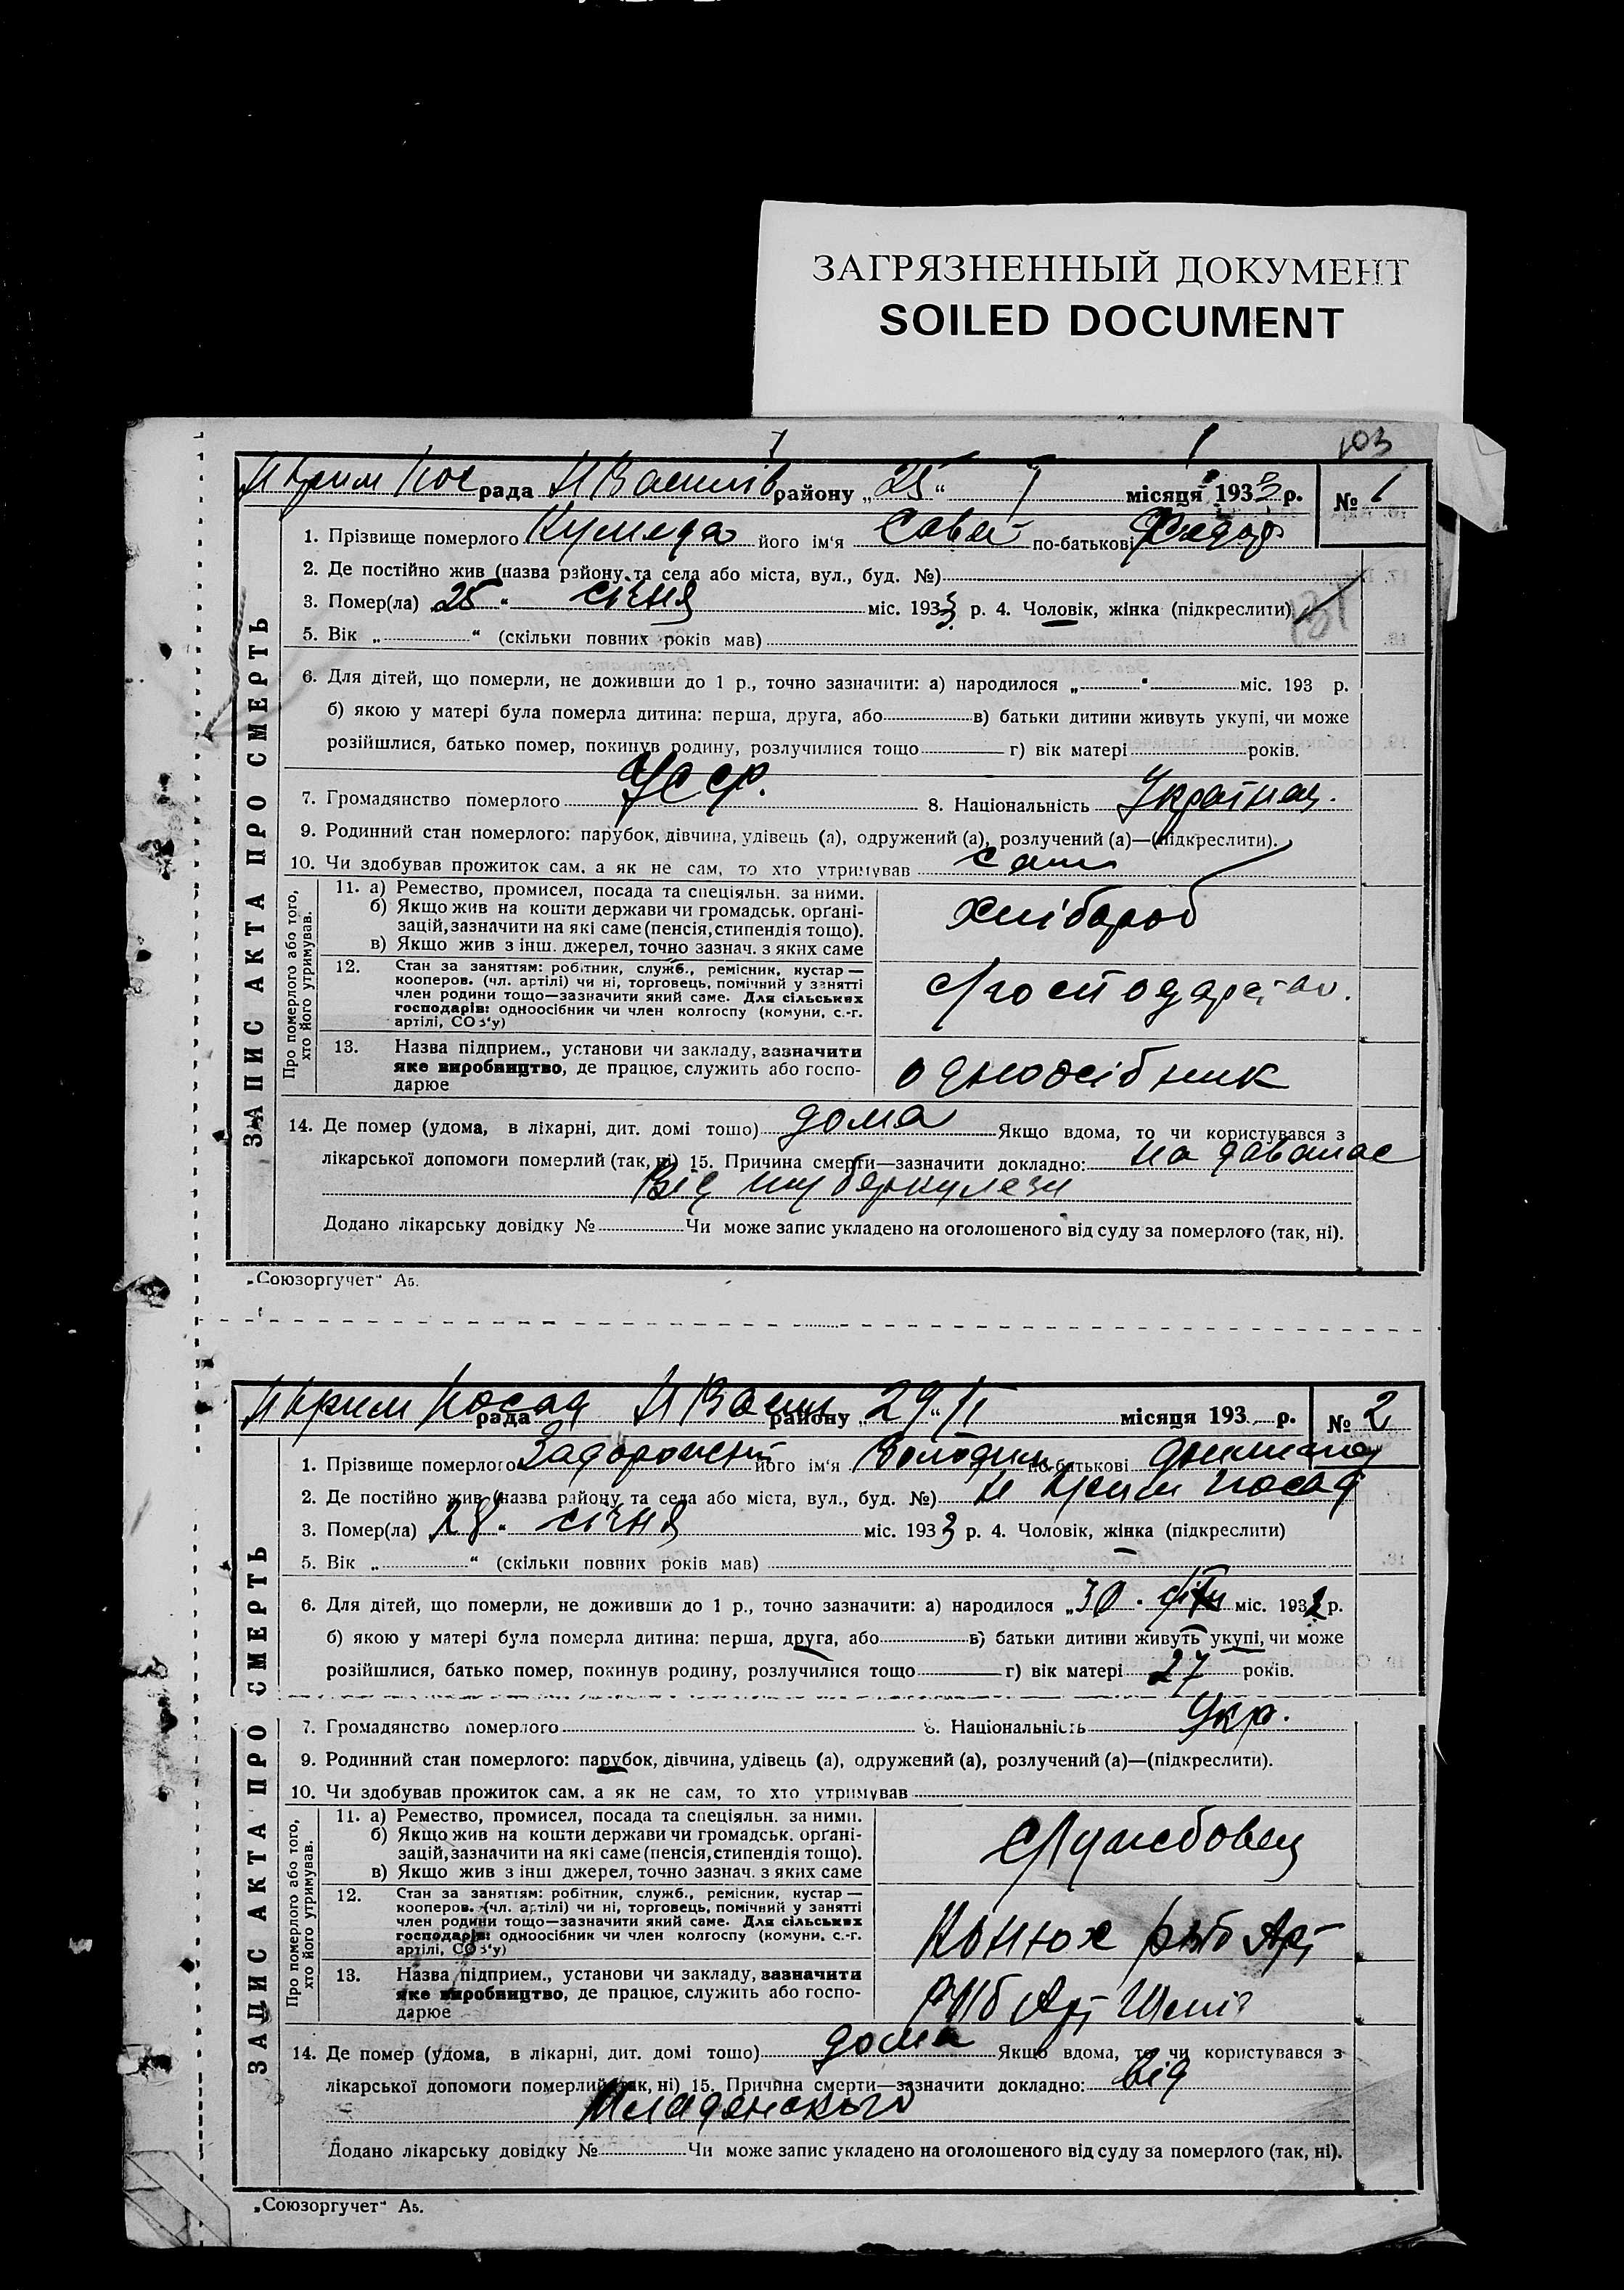 ЗАГРЯЗНЕННЫЙ ДОКУМЕНТ
SOILED DOCUMENT
103
рада району „25“ місяця 1933 р. № 1
ЗАПИС АКТА ПРО СМЕРТЬ
1. Прізвище померлого його ім'я Сава по-батькові Федор
2. Де постійно жив (назва району та села або міста, вул., буд. №)
3. Помер(ла) „25“ січня міс. 1933 р. 4. Чоловік, жінка (підкреслити)
5. Вік „ “ (скільки повних років мав)
6. Для дітей, що померли, не доживши до 1 р., точно зазначити: а) народилося „ “ міс. 193 р.
б) якою у матері була померла дитина: перша, друга, або в) батьки дитини живуть укупі, чи може
розійшлися, батько помер, покинув родину, розлучилися тощо г) вік матері років.
7. Громадянство померлого УССР. 8. Національність Українец.
9. Родинний стан померлого: парубок, дівчина, удівець (а), одружений (а), розлучений (а)—(підкреслити).
10. Чи здобував прожиток сам, а як не сам, то хто утримував сам
Про померлого або того, хто його утримував.
11. а) Ремество, промисел, посада та спеціяльн. за ними.
б) Якщо жив на кошти держави чи громадськ. орґані-
зацій, зазначити на які саме (пенсія, стипендія тощо).
в) Якщо жив з інш. джерел, точно зазнач. з яких саме
хлібороб
12. Стан за заняттям: робітник, служб., ремісник, кустар—
кооперов. (чл. артілі) чи ні, торговець, помічний у занятті
член родини тощо—зазначити який саме. Для сільських
господарів: одноосібник чи член колгоспу (комуни, с.-г.
артілі, СОЗ'у)
13. Назва підприєм., установи чи закладу, зазначити
яке виробництво, де працює, служить або госпо-
дарює
одноосібник
14. Де помер (удома, в лікарні, дит. домі тощо) дома Якщо вдома, то чи користувався з
лікарської допомоги померлий (так, ні) 15. Причина смерти—зазначити докладно:
Від туберкулези
Додано лікарську довідку № Чи може запис укладено на оголошеного від суду за померлого (так, ні).
„Союзоргучет“ А5.
рада району „29“ місяця 193 р. № 2
ЗАПИС АКТА ПРО СМЕРТЬ
1. Прізвище померлого його ім'я Володим по-батькові
2. Де постійно жив (назва району та села або міста, вул., буд. №)
3. Помер(ла) „28“ січня міс. 1933 р. 4. Чоловік, жінка (підкреслити)
5. Вік „ “ (скільки повних років мав)
6. Для дітей, що померли, не доживши до 1 р., точно зазначити: а) народилося „30“ міс. 1932 р.
б) якою у матері була померла дитина: перша, друга, або в) батьки дитини живуть укупі, чи може
розійшлися, батько помер, покинув родину, розлучилися тощо г) вік матері 27 років.
7. Громадянство померлого 8. Національність Укр.
9. Родинний стан померлого: парубок, дівчина, удівець (а), одружений (а), розлучений (а)—(підкреслити).
10. Чи здобував прожиток сам, а як не сам, то хто утримував
Про померлого або того, хто його утримував.
11. а) Ремество, промисел, посада та спеціяльн. за ними.
б) Якщо жив на кошти держави чи громадськ. орґані-
зацій, зазначити на які саме (пенсія, стипендія тощо).
в) Якщо жив з інш. джерел, точно зазнач. з яких саме
службовец
12. Стан за заняттям: робітник, служб., ремісник, кустар—
кооперов. (чл. артілі) чи ні, торговець, помічний у занятті
член родини тощо—зазначити який саме. Для сільських
господарів: одноосібник чи член колгоспу (комуни, с.-г.
артілі, СОЗ'у)
Конюх
13. Назва підприєм., установи чи закладу, зазначити
яке виробництво, де працює, служить або госпо-
дарює
14. Де помер (удома, в лікарні, дит. домі тощо) дома Якщо вдома, то чи користувався з
лікарської допомоги померлий (так, ні) 15. Причина смерти—зазначити докладно: від
Младенського
Додано лікарську довідку № Чи може запис укладено на оголошеного від суду за померлого (так, ні).
„Союзоргучет“ А5.